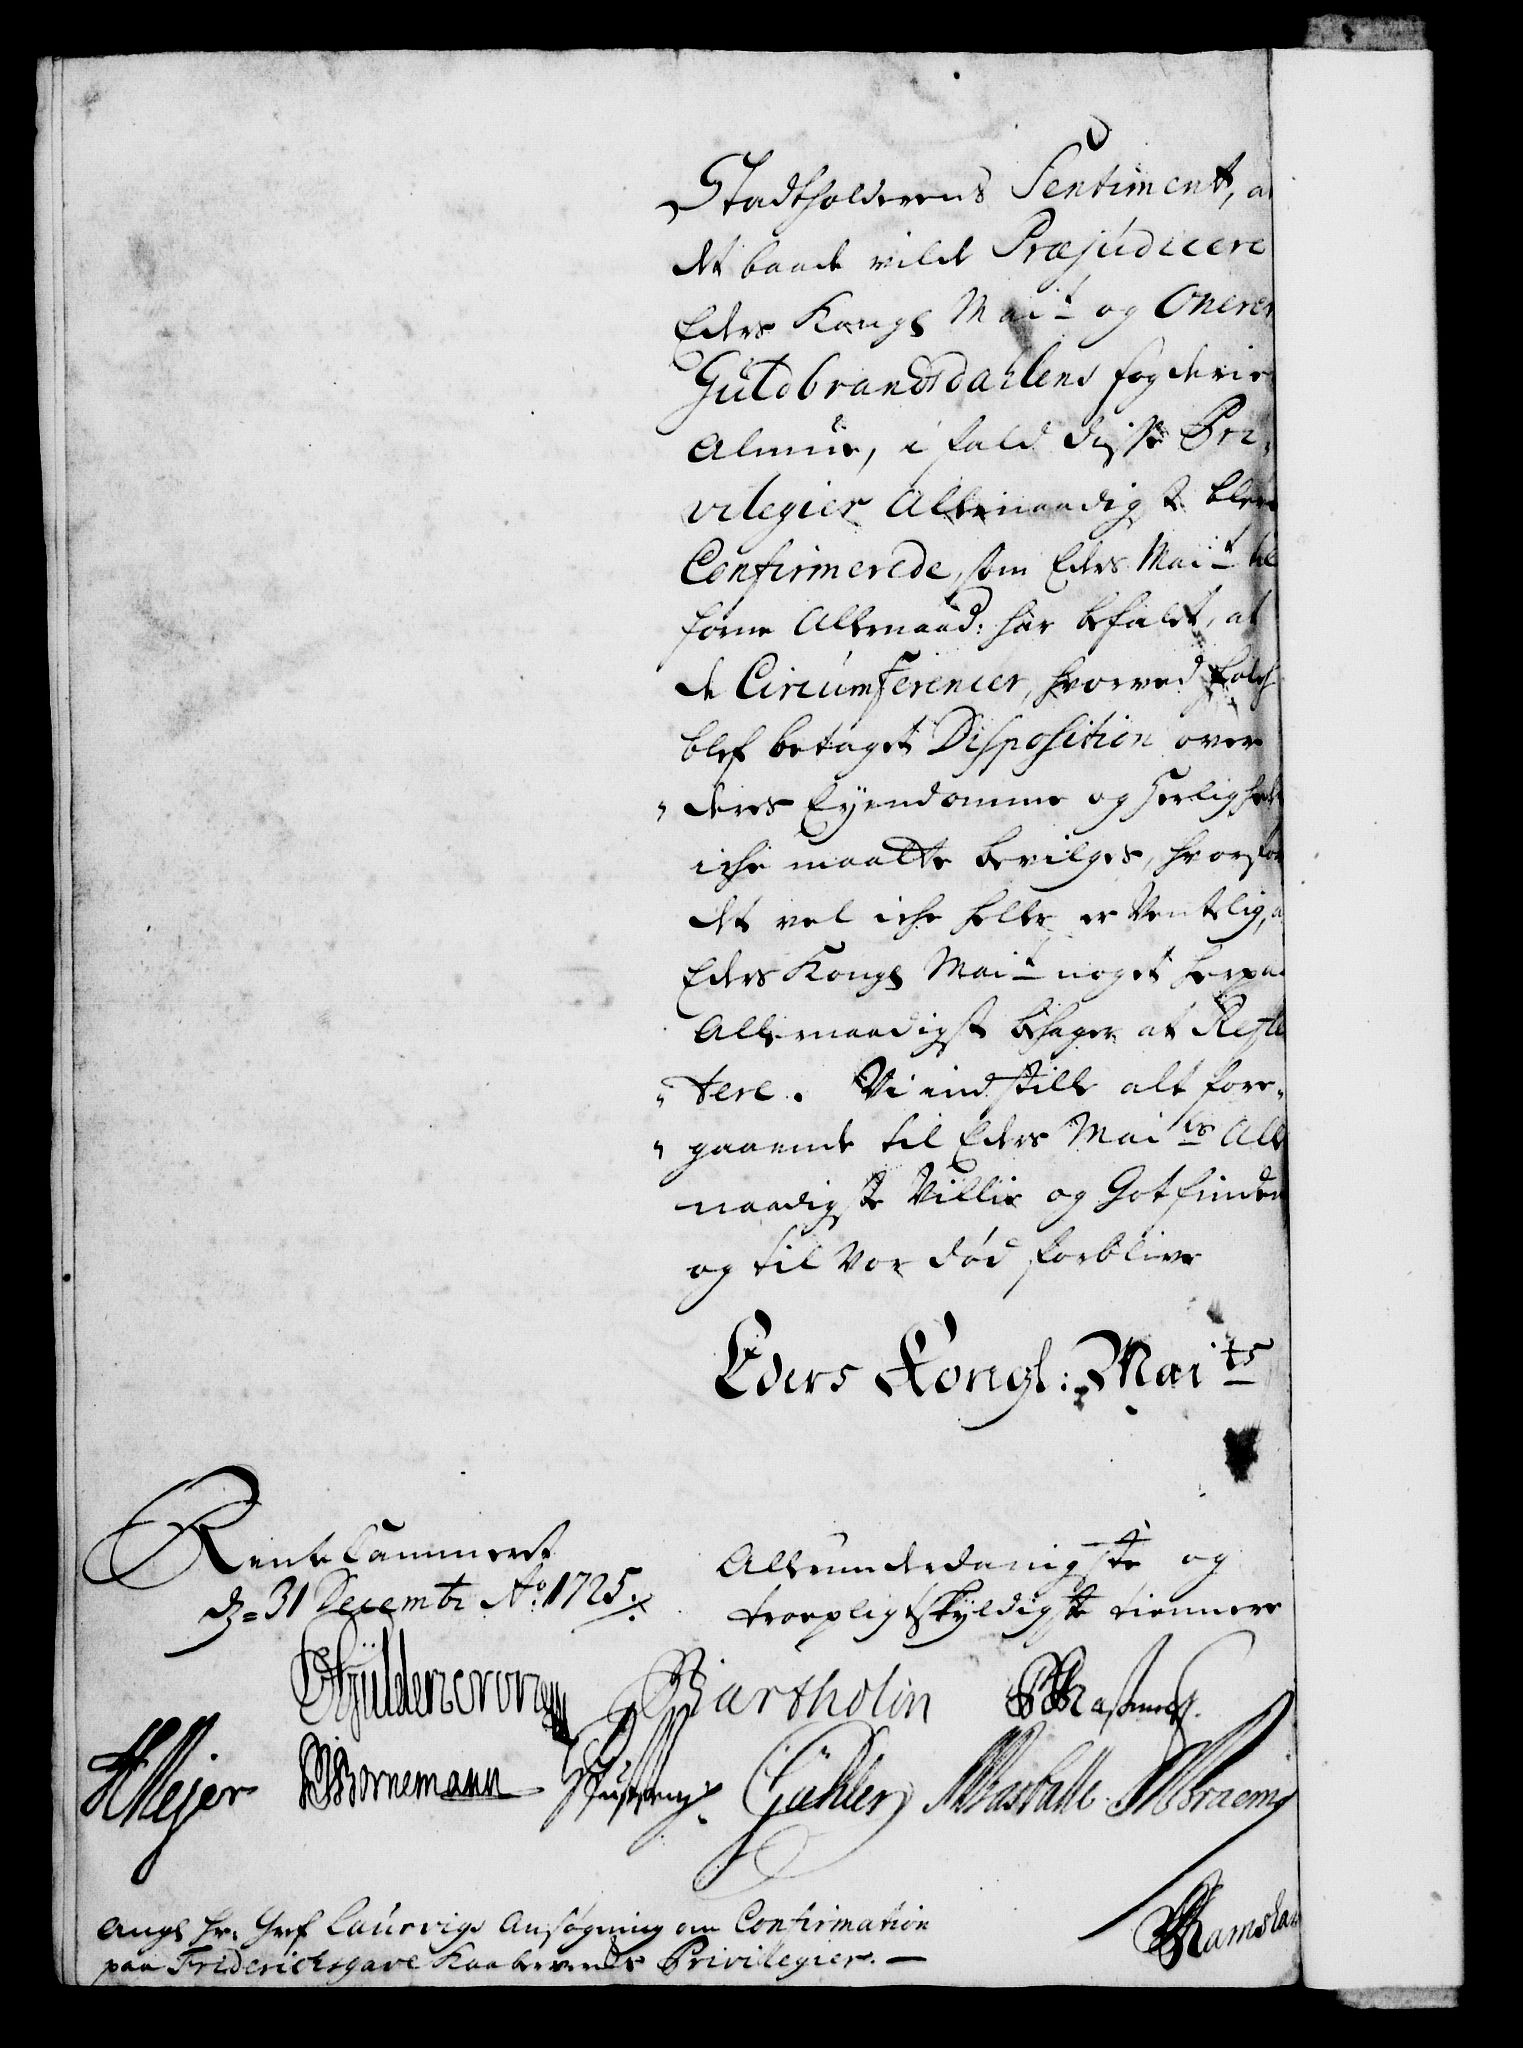 Stadtholderens Sentiment, at
det baade vilde Præjudicere
Eders Kongl Mait og Onerere
Guldbrandsdahlens fogderies
Almue, i fald disse Pri-
vilegier Allernaadigst blev
Confirmerede, som Eders Mait til
forne Allernaad: har befalet, at
de Circumferencer, hvorved folch
blef betaget Disposition over
deres Eyendomme og herlighed
iche maatte bevilges, hvorfor
det vel iche heller er Ventelig, at
Eders Kongl Mait noget herpaa
Allernaadigst behager at Reflec
tere. Vi indstille alt fore-
gaaende til Eders Maits Aller
naadigste Villie og Gotfindende
og til Vor död forblive
Eders Kongl: Maits
Rente Cammeret
dz= 31 Decembr Ao 1725.
Allerunderdanigste og
troepligtskyldigste tiennere
Güldencrone Bartholin
HMejer Bornemann Gähler
Ramshart
Angl Hr: Gref Laurvigs Ansögning om Confirmation
paa Friderichsgave Kaaberverds Privilegier.—